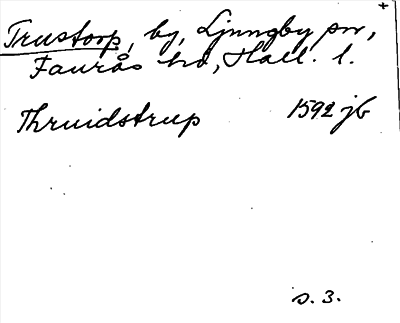 +
Trustorp, by, Ljungby sn,
Faurås hd, Hall. l.
Thruidstrup 1592 jb
s. 3.